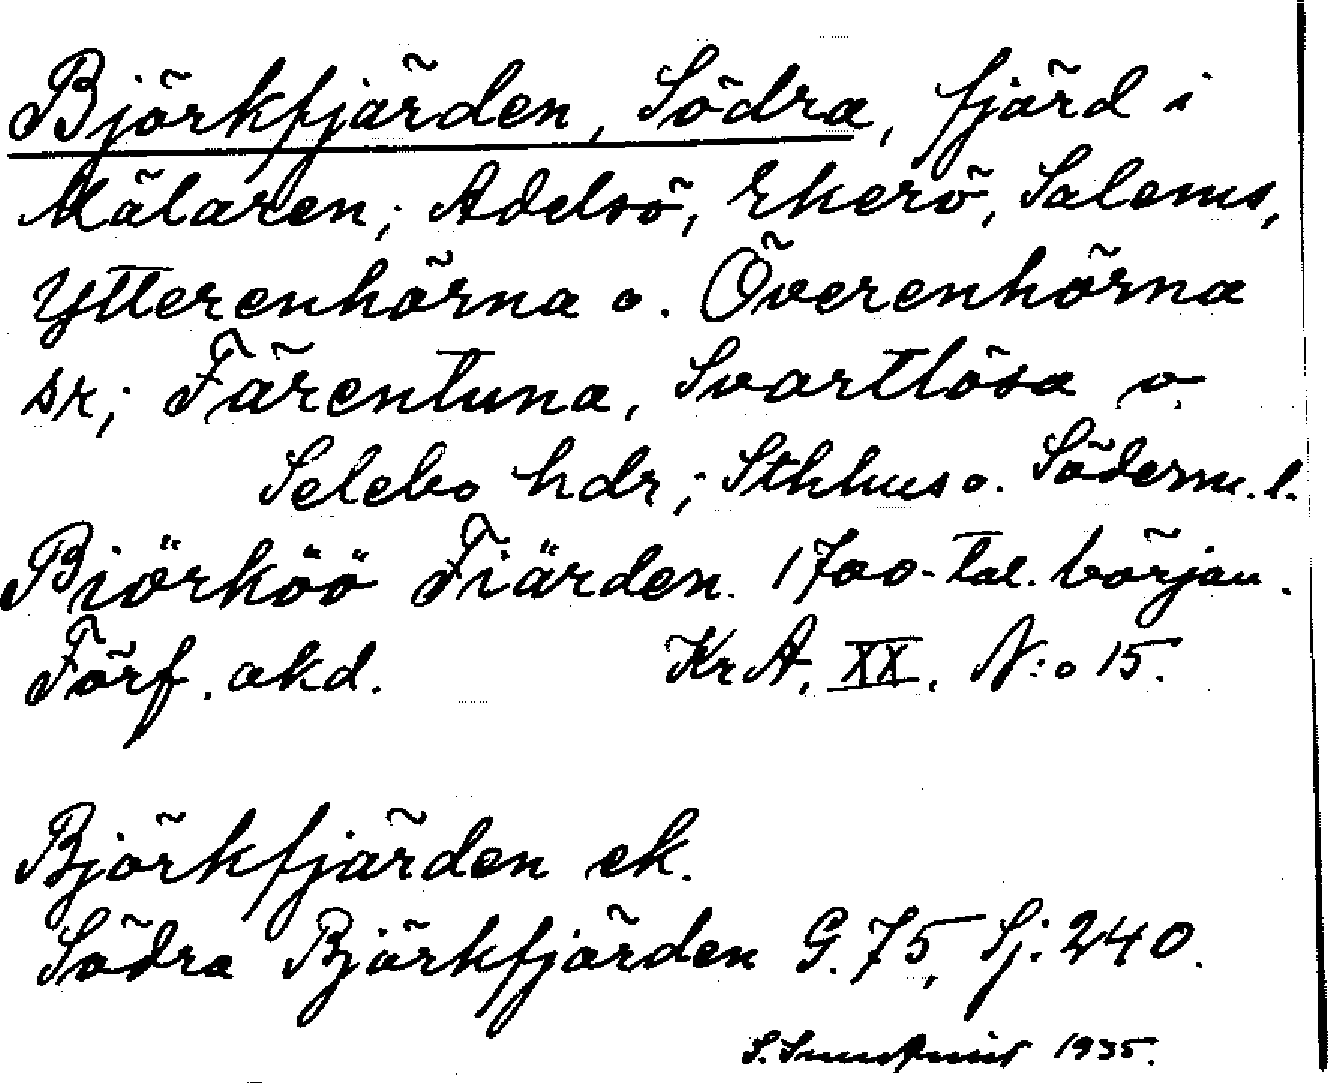 Björkfjärden, Södra, fjärd i
Mälaren; Adelsö, Ekerö, Salems,
Ytterenhörna o. Överenhörna
sr; Färentuna, Svartlösa o.
Selebo hdr; Sthlms o. Söderm. l.
Biörköö Fiärden. 1700-tal. början.
Förf. okd. Kr A. XX. N:o 15.
Björkfjärden ek.
Södra Björkfjärden G. 75, Sj. 240.
S. 1935.